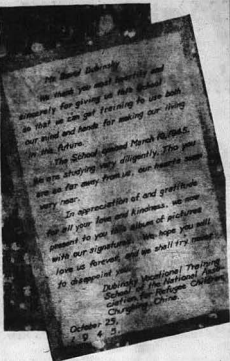 Mr. David Dubinsky
We thank you most heartily and
sincerely for giving us this School
so that we can get training to use both
our mind and hands for making our living
in the future.
The School opened March 10, 1945.
We are studying very diligently. Tho you
are so far away from us, our hearts seem
very near.
In appreciation of and gratitude
for all your love and kindness, we now
present to you this album of pictures
with our signatures. We hope you will
love us forever, and we shall try never
to disappoint you.
Dubinsky Vocational Training
School of the National Asso-
ciation for Refugee Children
Chungking, China.
October 25
1945